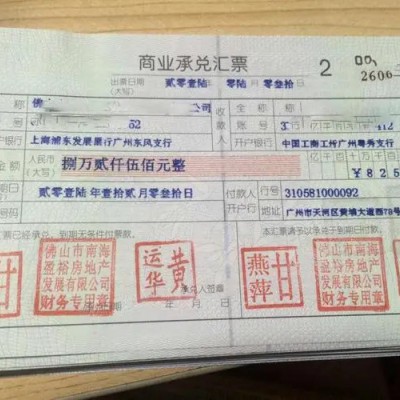 商业承兑汇票 2
2606
出票日期 贰零壹陆 年 零陆 月 零叁拾日
(大写)
称 佛 公司 全称
52 收款人 账号
开户银行 上海浦东发展银行广州东风支行 开户银行 中国工商工行广州粤秀支行
金额 人民币 捌万贰仟伍佰元整 亿千百十万千百
(大写) ¥825
贰零壹陆 年壹拾贰月零叁拾日 付款人 行号 310581000092
(大写) 开户行 地址 广州市天河区黄埔大道西79号
票已经承兑,到期无条件付款票款。 本汇票请予以承兑于到期日付
佛山市南海
盈裕房地产
发展有限公司
财务专用章
甘
黄运华
甘燕萍
佛山市南海
盈裕房地产
发展有限公司
财务专用章
承兑人签章
年 月 日